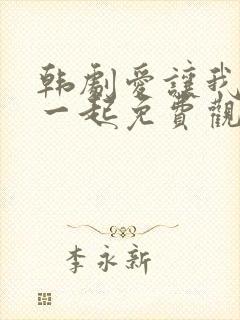 韩劇愛讓我
一起免費觀
李永新